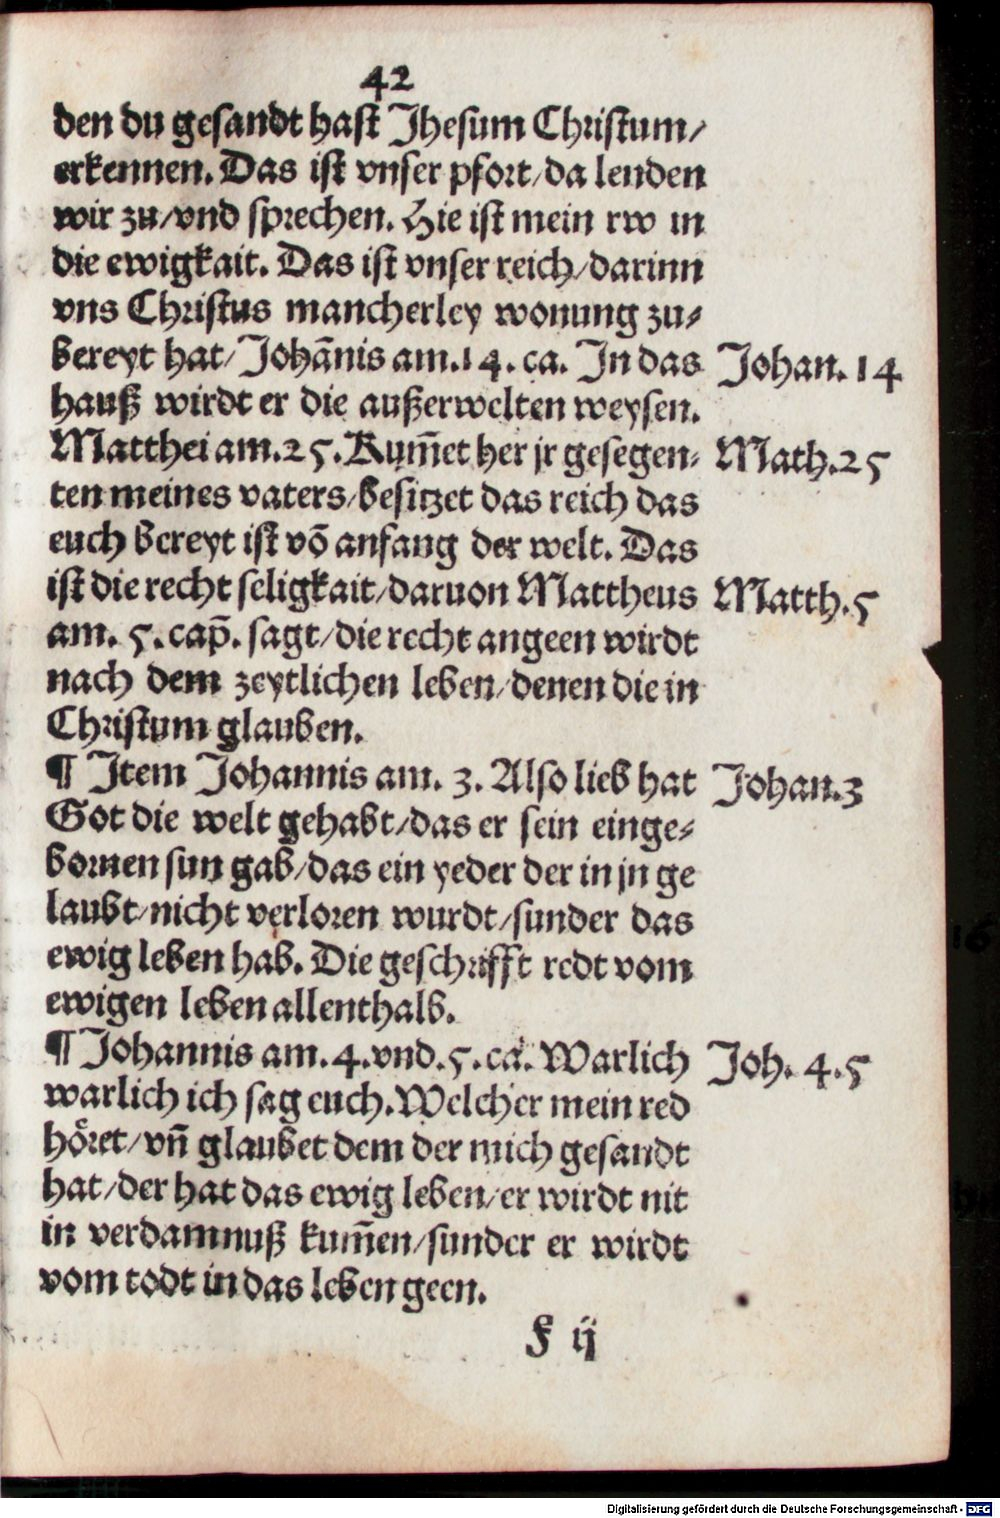 42
den du gesandt hast Jhesum Christum/
erkennen. Das ist vnser pfort/da lenden
wir zu/vnd sprechen. Hie ist mein rw in
die ewigkait. Das ist vnser reich/darinn
vns Christus mancherley wonung zu⸗
bereyt hat/Johānis am.14.ca. In das Johan.14
hauß wirdt er die außerwelten weysen.
Matthei am.25.Kum̄et her jr gesegen⸗ Math.25
ten meines vaters/besitzet das reich das
euch bereyt ist vō anfang der welt. Das
ist die recht seligkait/daruon Mattheus Matth.5
am. 5.cap̄. sagt/die recht angeen wirdt
nach dem zeytlichen leben/denen die in
Christum glauben.
¶ Jtem Johannis am. 3. Also lieb hat Johan.3
Got die welt gehabt/das er sein einge⸗
bornen sun gab/das ein yeder der in jn ge
laubt/nicht verloren wurdt/sunder das
ewig leben hab. Die geschrifft redt vom
ewigen leben allenthalb.
¶ Johannis am.4.vnd.5.ca. Warlich Joh. 4.5
warlich ich sag euch.Welcher mein red
hoͤret/vn̄ glaubet dem der mich gesandt
hat/der hat das ewig leben/er wirdt nit
in verdamnuß kum̄en/sunder er wirdt
vom todt in das leben geen.
F ij
Digitalisierung gefördert durch die Deutsche Forschungsgemeinschaft - DFG